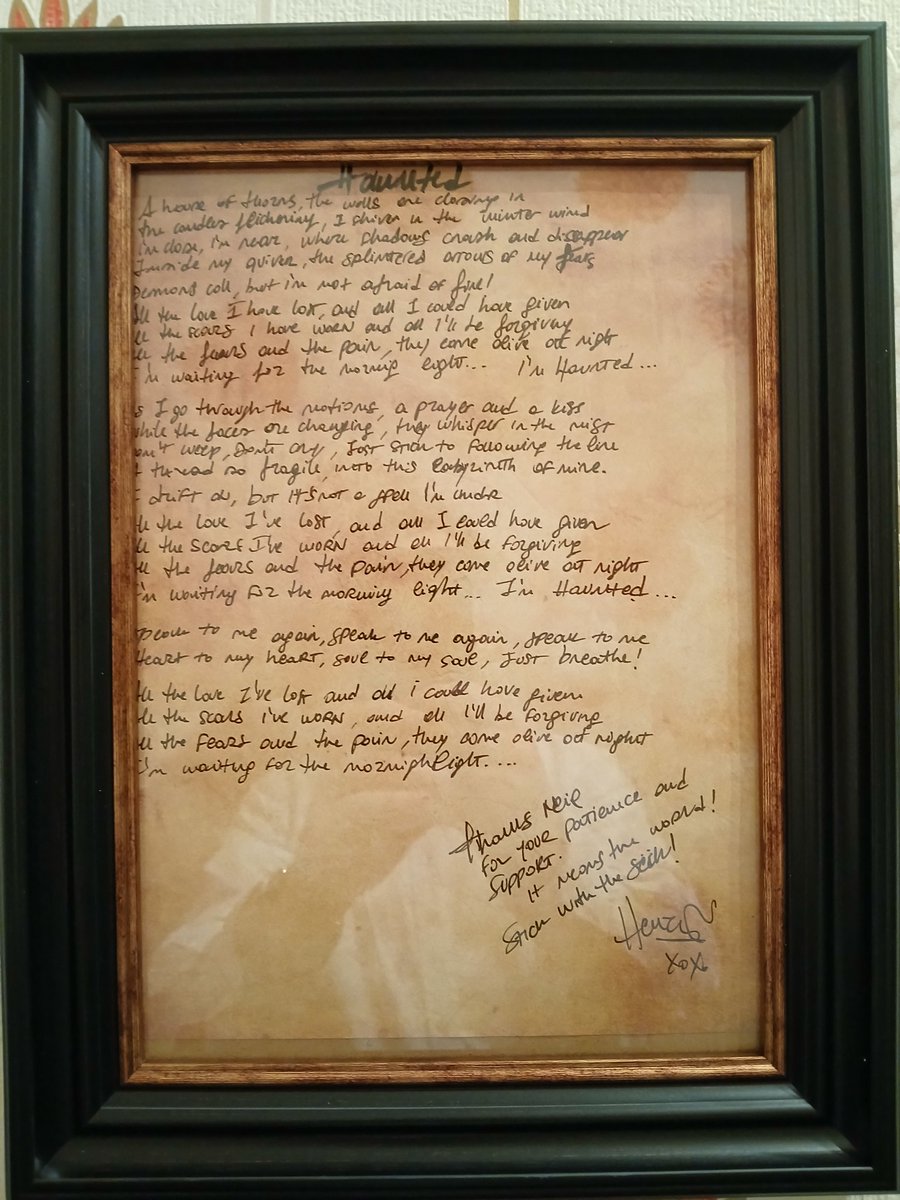 Haunted
A house of thorns, the walls are closing in
the candles flickering, I shiver in the winter wind
I'm close, I'm near, where shadows crash and disappear
Inside my quiver, the splintered arrows of my fears
Demons call, but i'm not afraid of fire!
All the love I have lost, and all I could have given
All the scars I have worn and all I'll be forgiving
All the fears and the pain, they come alive at night
I'm waiting for the morning light... I'm Haunted...
As I go through the motions, a prayer and a kiss
While the faces are changing, they whisper in the mist
Don't weep, Don't cry, Just stick to following the line
A thread so fragile, into this labyrinth of mine.
I drift on, but It's not a spell I'm under
All the love I've lost, and all I could have given
All the scars I've worn and all I'll be forgiving
All the fears and the pain, they come alive at night
I'm waiting for the morning light... I'm Haunted...
Speak to me again, speak to me again, speak to me
Heart to my heart, soul to my soul, Just breathe!
All the love I've lost and all i could have given
All the scars I've worn, and all I'll be forgiving
All the fears and the pain, they come alive at night
I'm waiting for the morning light....
Thanks Neil
For your patience and
support.
It means the world!
Stick with the
XOX